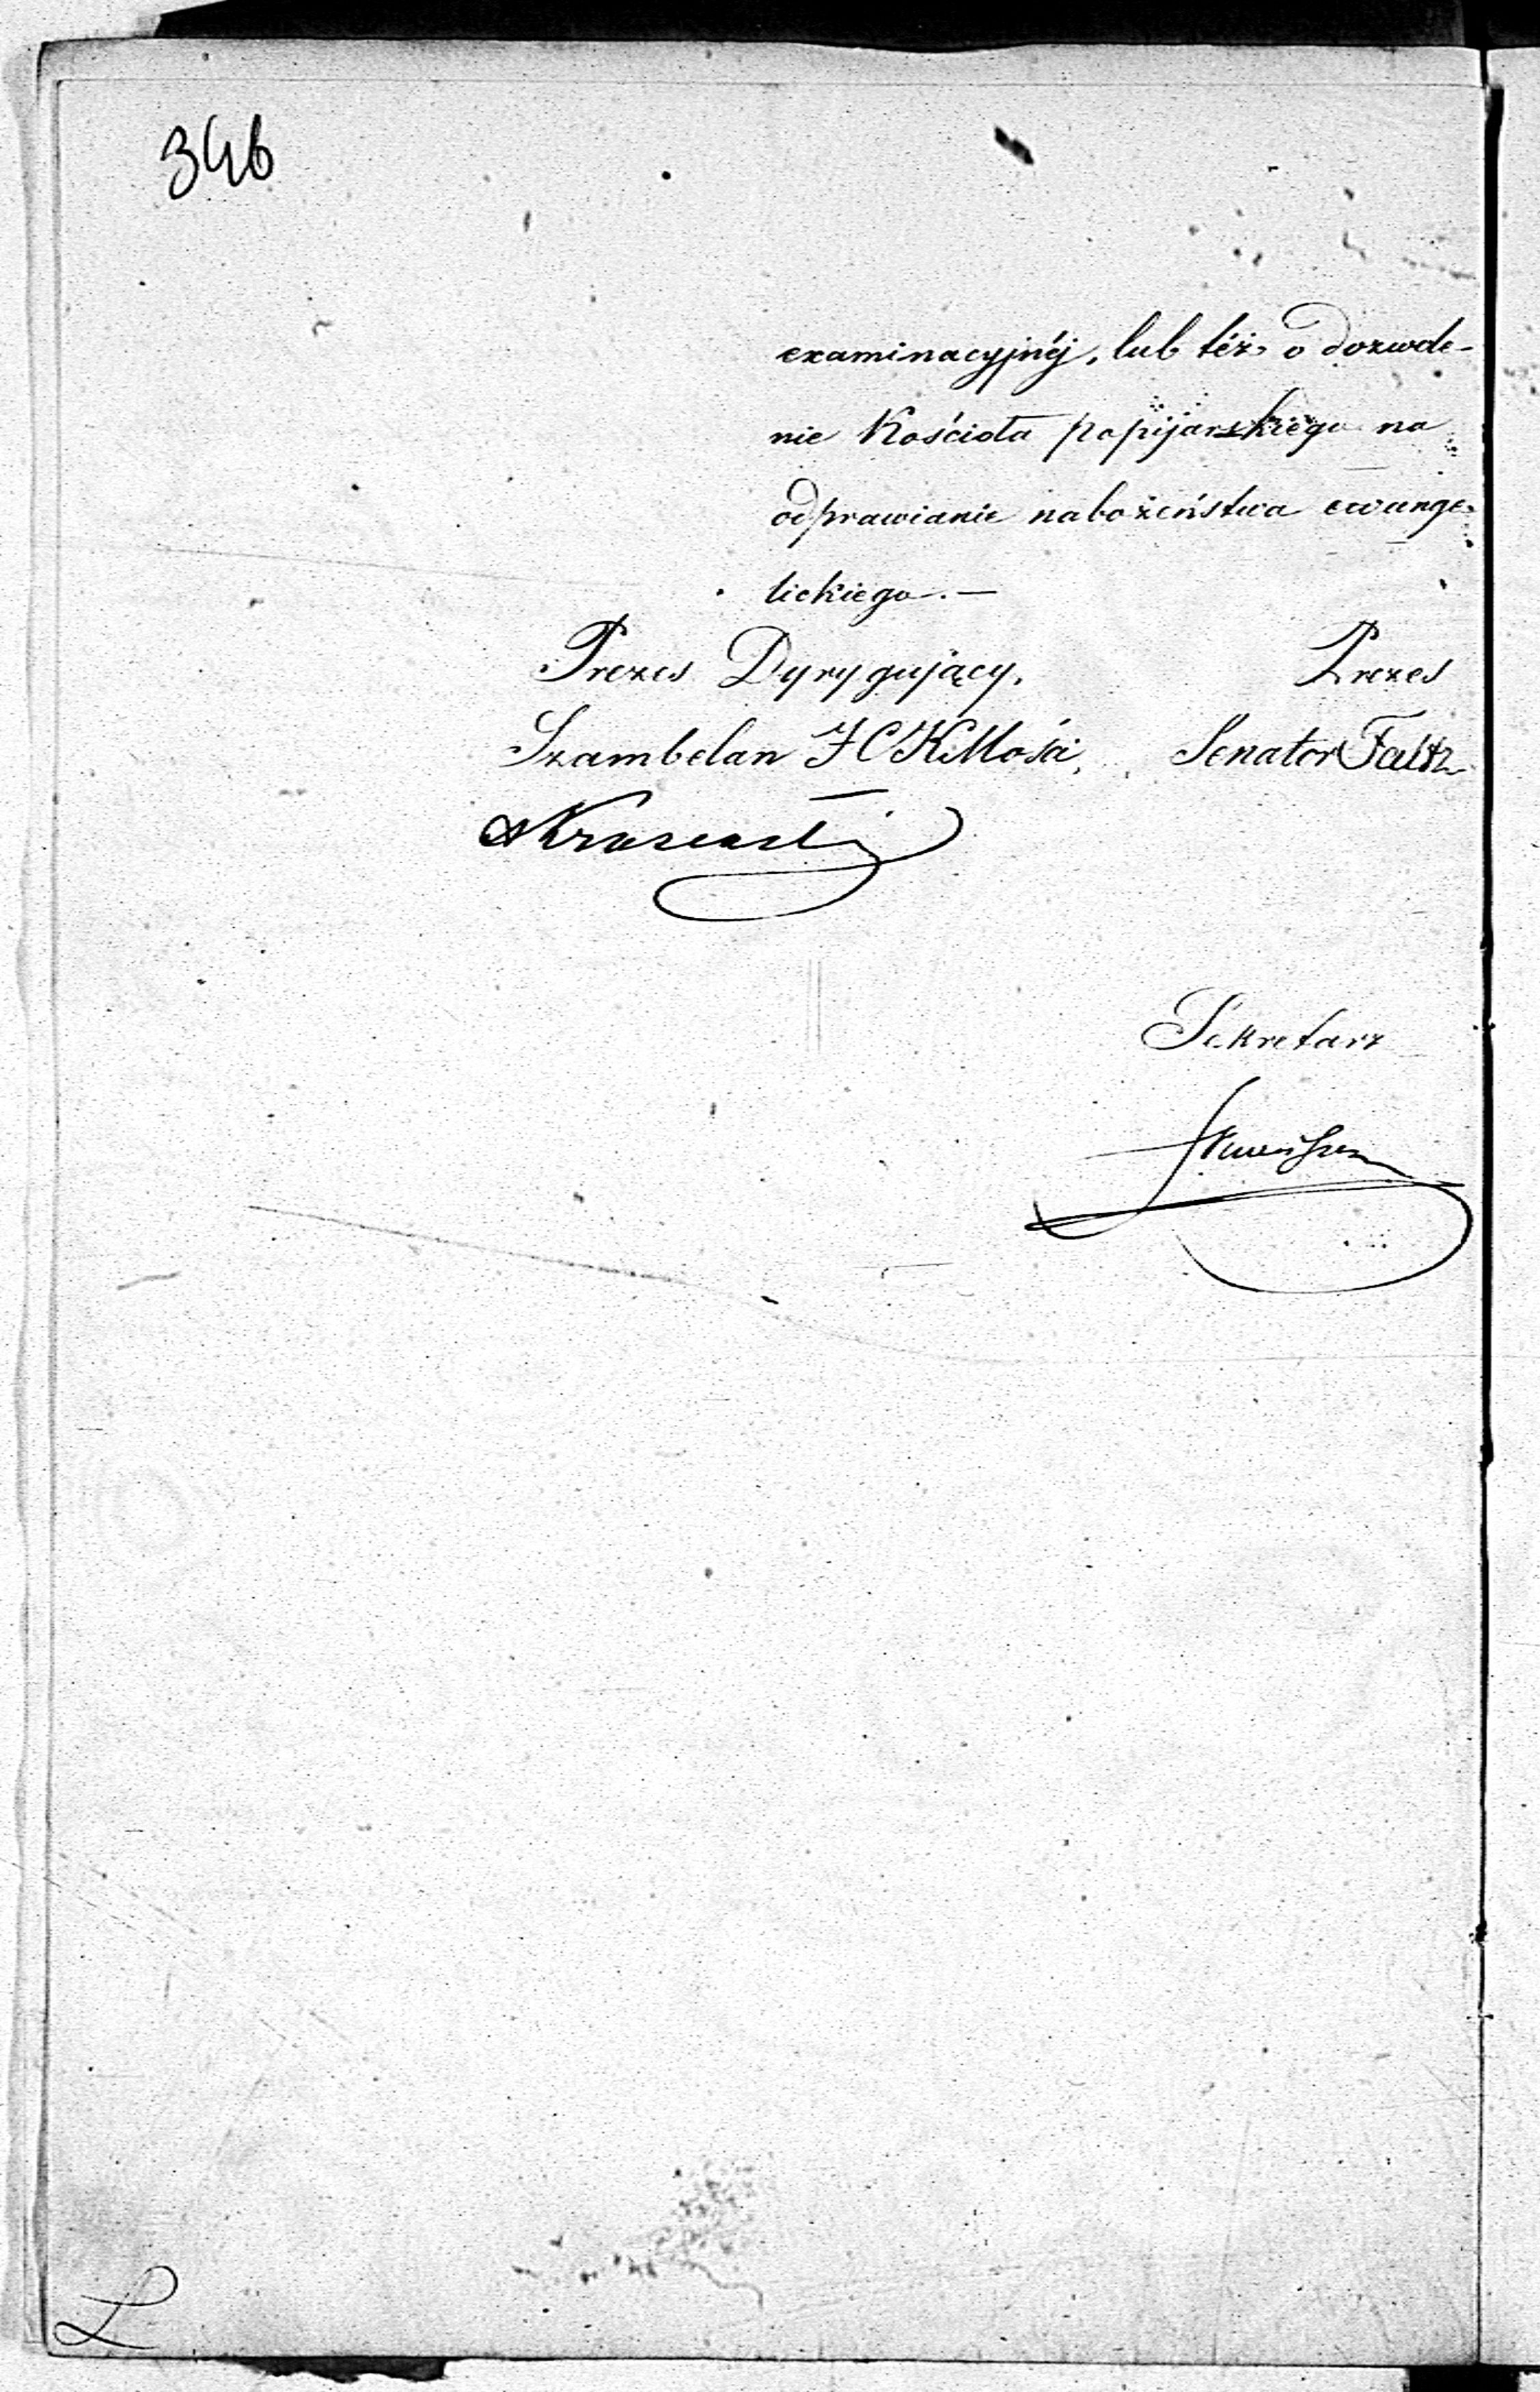 346
examinacyjnéj, lub téż o dozwole-
nie Kościoła popijarskiego na
odprawianie nabożeństwa ewange-
lickiego. —
Prezes Dyrygujący, Prezes
Szambelan JCKMości, Senator Faltz
Sekretarz